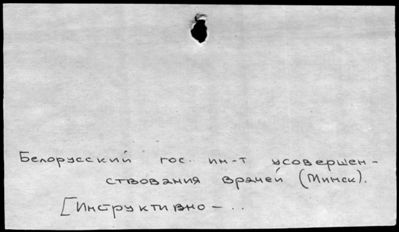 Белорусский гос. ин-т усовершен-
ствования врачей (Минск).
[Инструктивно-..